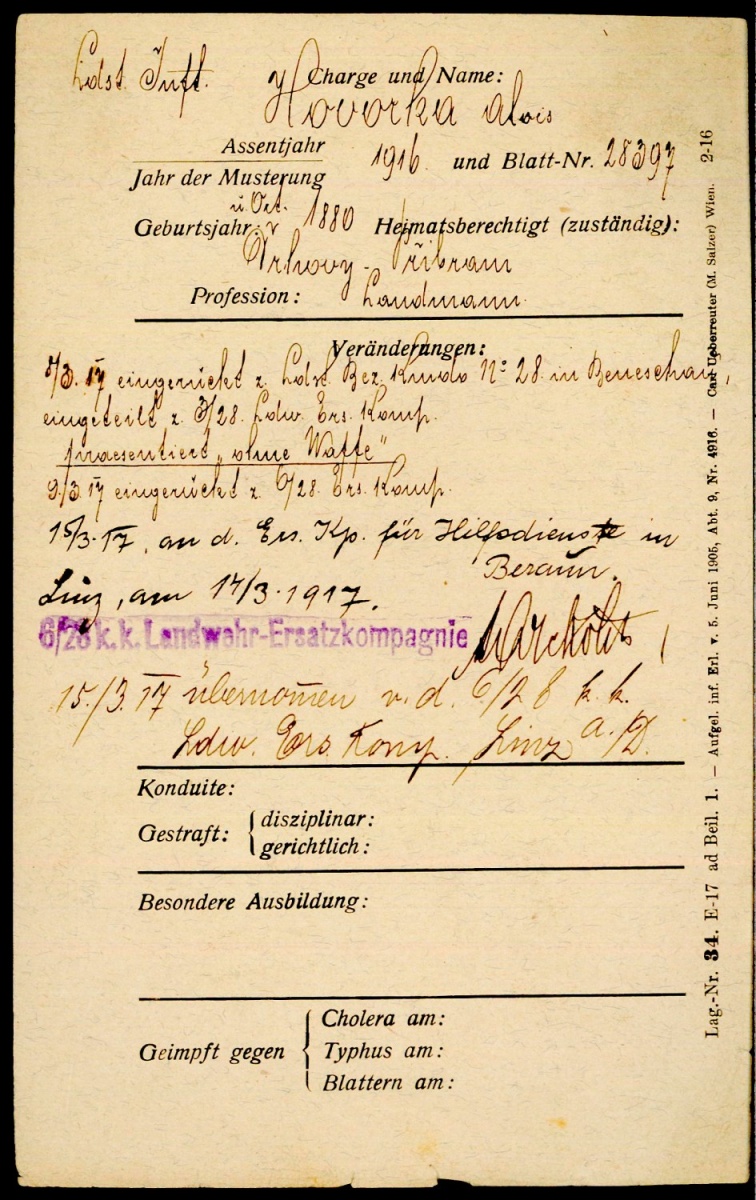 Ldst. Inft. Charge und Name:
Hovorka Alois
Assentjahr
Jahr der Musterung 1916 und Blatt-Nr. 28397
u. Ort.
Geburtsjahr: 1880 Heimatsberechtigt (zuständig):
Přibram
Profession: Landmann
Veränderungen:
5/3. 17 eingerückt z. Ldst. Bez. Kmdo No 28 in Beneschau,
eingeteilt z. /28. Ldw. Ers. Komp.
praesentiert "ohne Waffe"
9./3. 17 eingerückt z. 6/28. Ers. Komp.
15/3. 17, an d. Ers. Kp. für Hilfsdienste in
Beraun.
Linz, am 14/3. 1917.
6/28 k. k. Landwehr-Ersatzkompagnie
15./3. 17 übernomen v. d. 6/28 k. k.
Ldw. Ers. Komp. Linz a./D.
Konduite:
Gestraft: disziplinar:
gerichtlich:
Besondere Ausbildung:
Geimpft gegen
Cholera am:
Typhus am:
Blattern am:
Lag.-Nr. 34. E-17 ad Beil. 1. — Aufgel. inf. Erl. v. 5. Juni 1905, Abt. 9, Nr. 4916. — Carl Ueberreuter (M. Salzer) Wien. 2-16